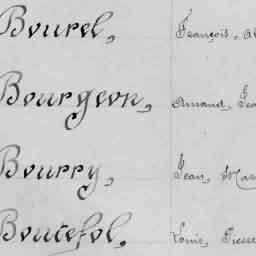 Bourel, François, Al
Bourgeon, Amand, Jea
Bourry, Jean, Mar
Boutefol, Louis, Pierre